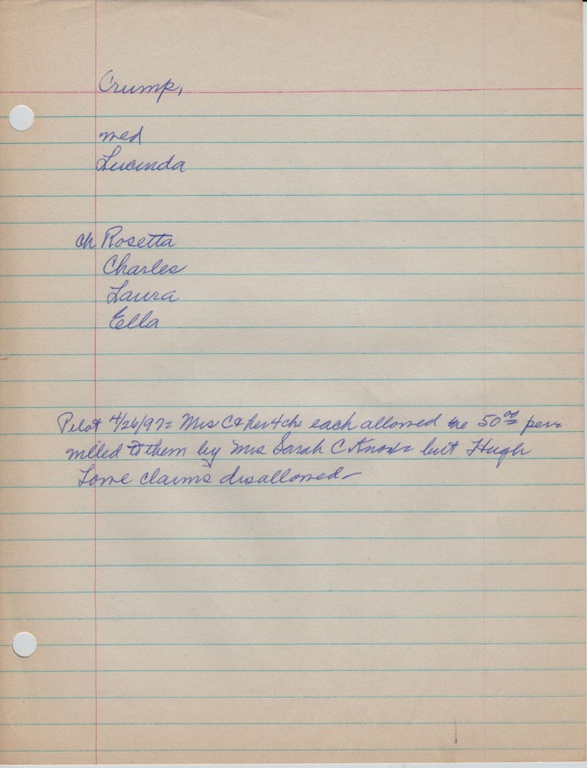 Crump,
med
Lucinda
ch Rosetta
Charles
Laura
Ella
Pilot 4/26/97= Mrs C & her 4 ch each allowed the 50 00
willed to them by Mrs Sarah C Knox= but Hugh
Lowe claims disallowed-